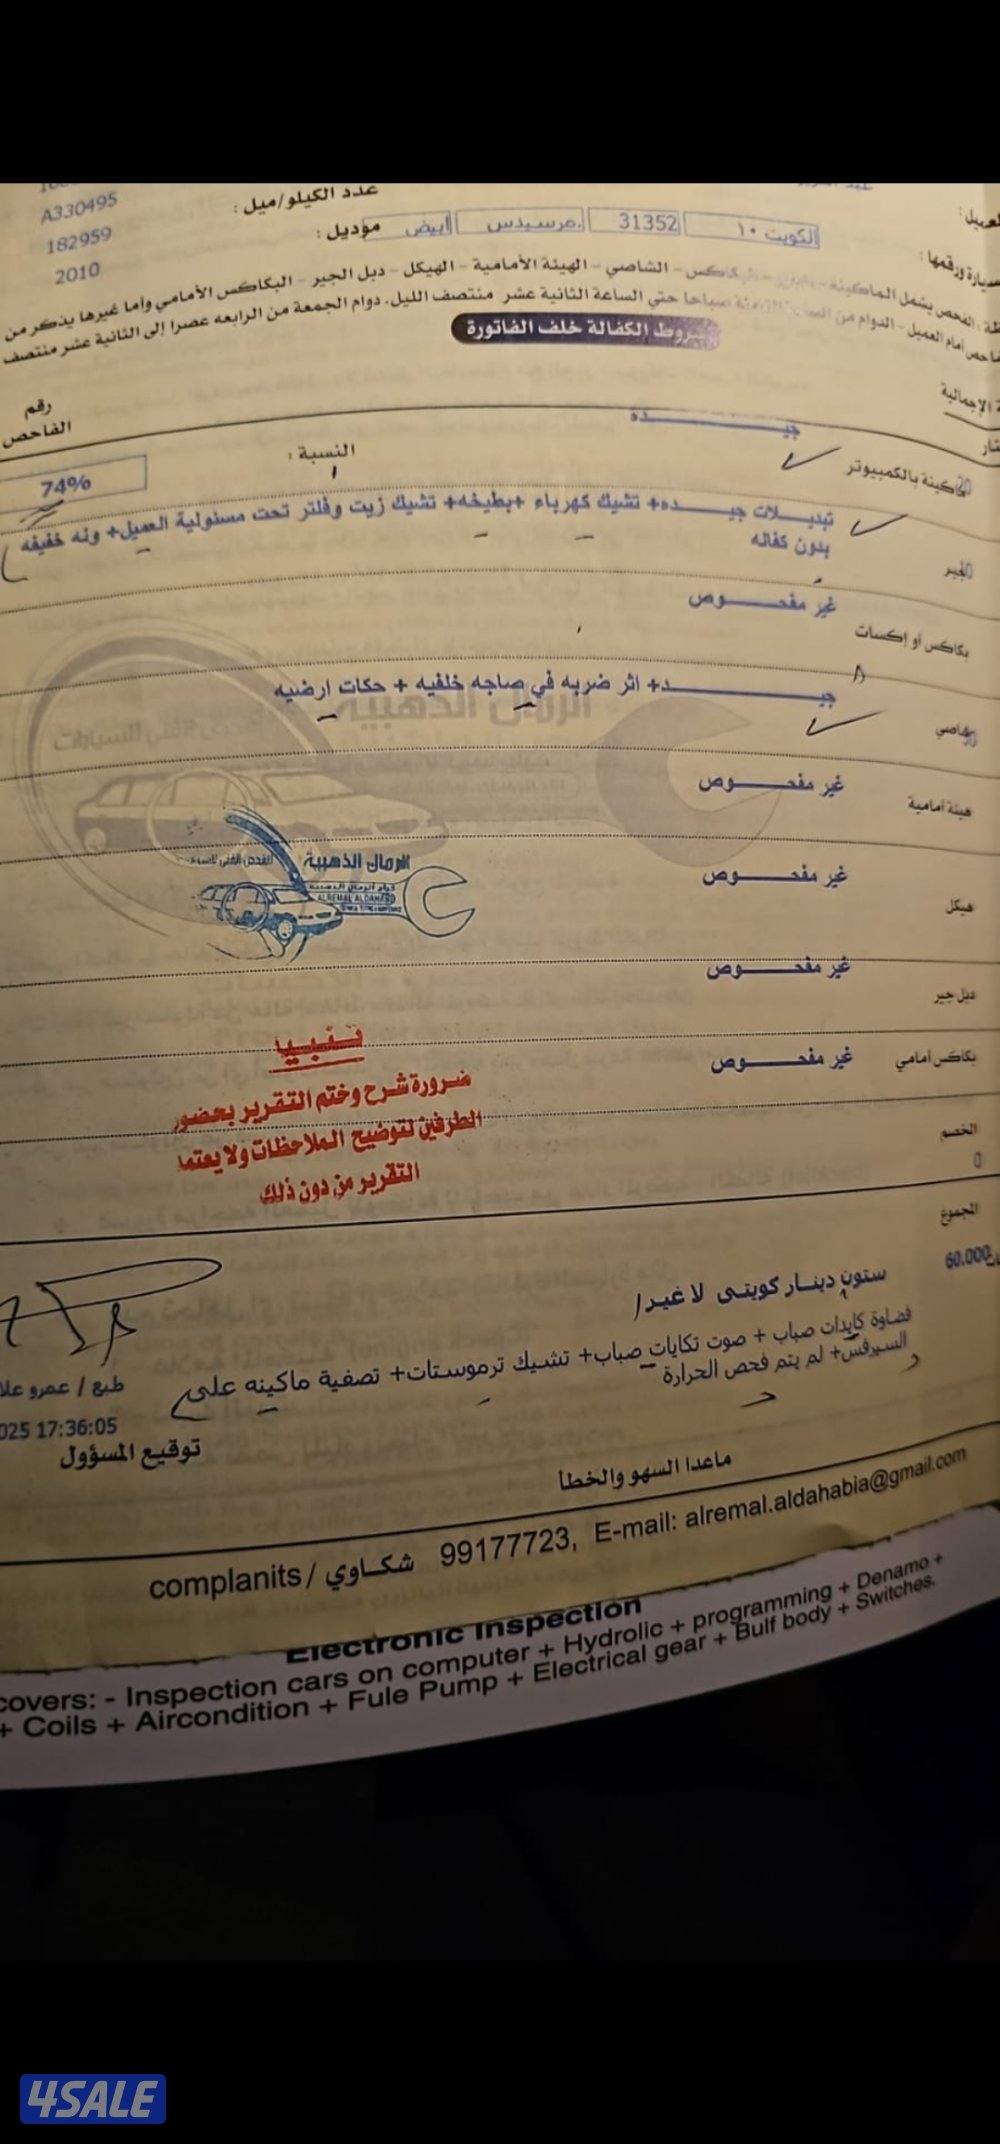 A330495
عدد الكيلو/ميل :
182959
الكويت ١٠ 31352 مرسيدس ابيض
موديل :
2010
سيارة ورقمها :
الفحص يشمل الماكينة - - البكاكس - الشاصي - الهيئة الأمامية - الهيكل - دبل الجير - البكاكس الأمامي وأما غيرها يذكر من
فاحص امام العميل - الدوام من الساعة الثامنة صباحا حتي الساعة الثانية عشر منتصف الليل. دوام الجمعة من الرابعه عصرا إلى الثانية عشر منتصف
شروط الكفالة خلف الفاتورة
الإجمالية
رقم
الفاحص
ماكينة بالكمبيوتر
جيــــــده
النسبة :
74%
الجير
تبديـــلات جيـــــده+ تشيك كهرباء +بطيخه+ تشيك زيت وفلتر تحت مسئولية العميل+ ونه خفيفه
بدون كفاله
بكاكس أو إكسات
غير مفحـــــوص
شاصي
جيـــــــد+ اثر ضربه في صاجه خلفيه + حكات ارضيه
هيئة أمامية
غير مفحـــــوص
هيكل
غير مفحـــــوص
دبل جير
غير مفحـــــوص
بكاكس أمامي
غير مفحـــــوص
الرمال الذهبية
الرمال الذهبية
ALREMAL ALDAHABIA
تنبيه
ضرورة شرح وختم التقرير بحضور
الطرفين لتوضيح الملاحظات ولا يعتمد
التقرير من دون ذلك
الخصم
0
المجموع
60.000
ستون دينـار كويتى لا غير/
فضاوة كايدات صباب + صوت تكايات صباب+ تشيك ترموستات+ تصفية ماكينه على
السيرفس+ لم يتم فحص الحرارة
طبع / عمرو علا
025 17:36:05
توقيع المسؤول
ماعدا السهو والخطأ
complanits / شكـاوي 99177723, E-mail: alremal.aldahabia@gmail.com
Electronic Inspection
covers: - Inspection cars on computer + Hydrolic + programming + Denamo +
+ Coils + Aircondition + Fule Pump + Electrical gear + Bulf body + Switches.
4SALE